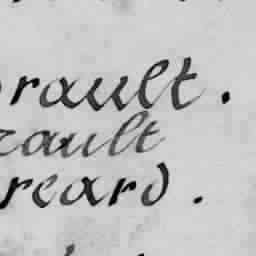 rault.
rault
reard.